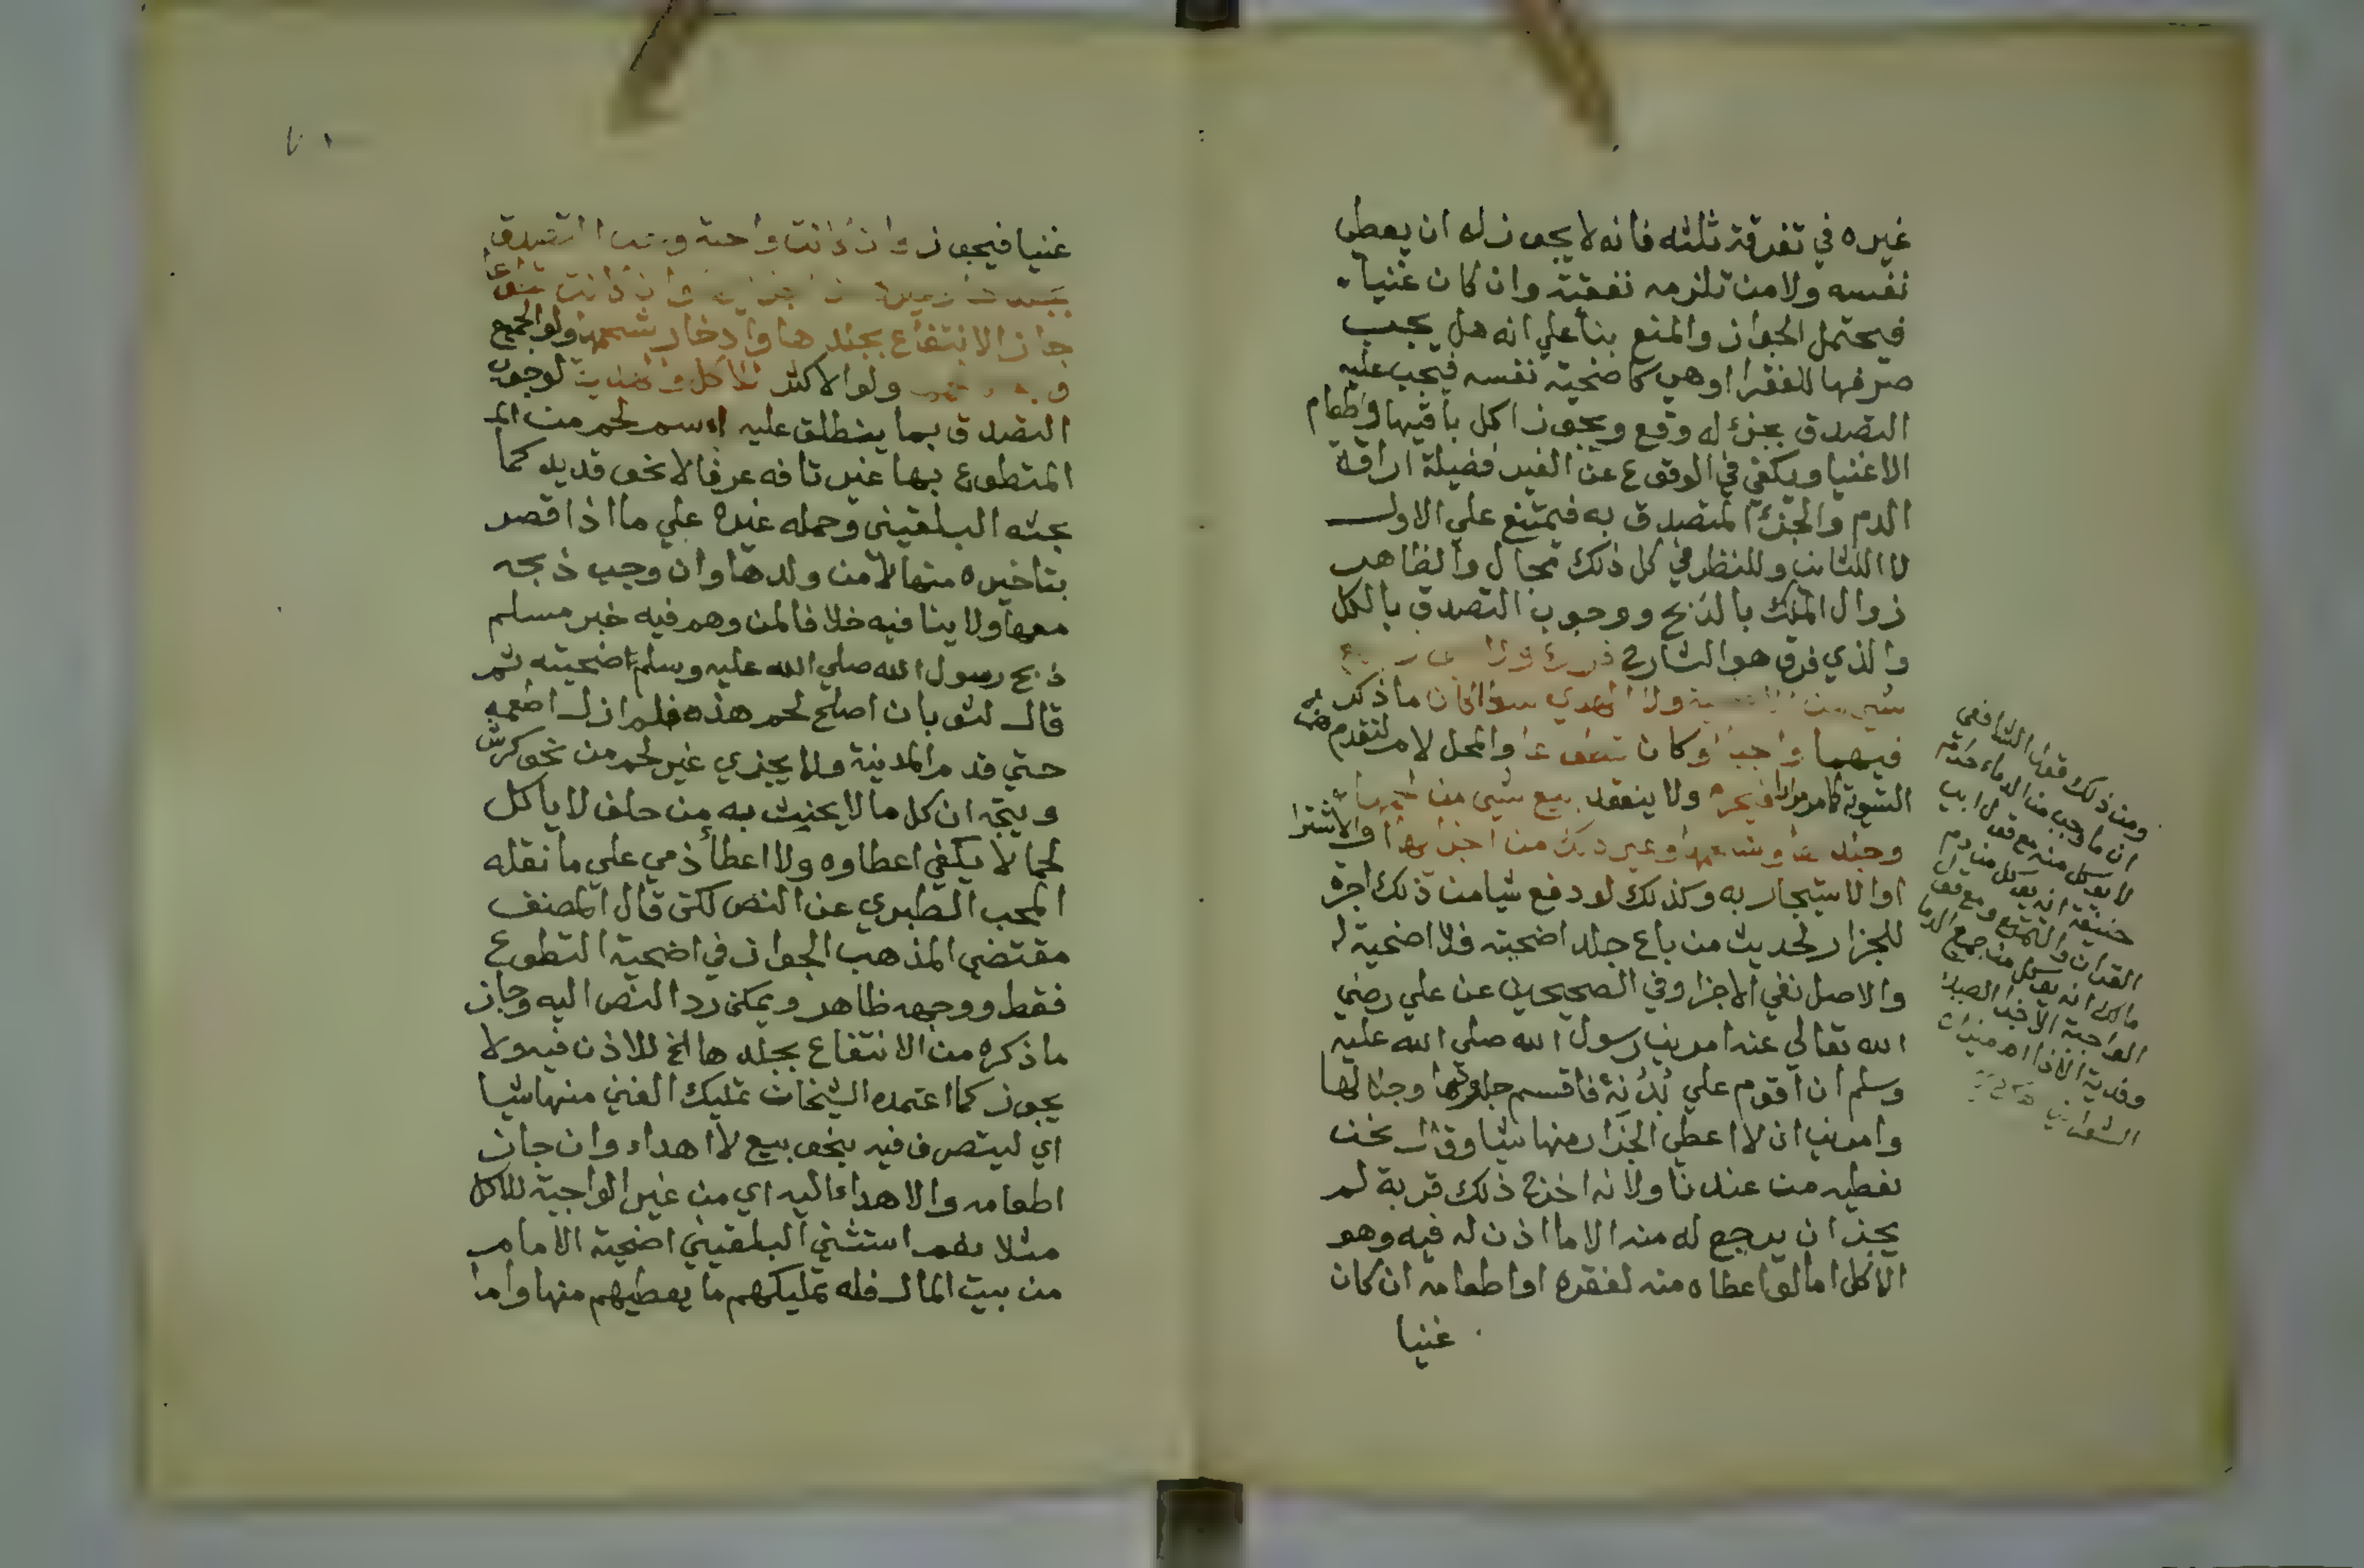 غيره في تفرقة ثلثه فانه لا يجوز له ان يعطي
نفسه ولا من تلزمه نفقته وان كان غنيا
فيحتمل الجواز والمنع بنأ علي انه هل يجب
صرفها للفقرا اوهي كاضحية نفسه فيجب عليه
التصدق بجزء له وقع ويجوز اكل باقيها واطعام
الاغنيا ويكفي في الوقوع عن الغير فضيلة اراقة
الدم والجزء المتصدق به فيمتنع علي الاول
لا الثاني وللنظر في كل ذلك مجال والظاهر
زوال الملك بالذبح ووجوب التصدق بالكل
والذي فرق هو الشارح
شي من ولا الهدي سوا كان ما ذكر
فيهما واجبا او كان تطوعا والمحل لامر لتقدم
التسوية كما مر مرارا فيحرم ولا ينعقد بيع شي من لحمها
وجلدها وشحمها وغير ذلك من اجزائها والاشترا
او الاستيجار به وكذلك لو دفع شيا من ذلك اجرة
للجزار لحديث من باع جلد اضحيته فلا اضحية له
والاصل نفي الاجزا وفي الصحيحين عن علي رضي
الله تعالي عنه امرني رسول الله صلي الله عليه
وسلم ان اقوم علي بُدُنِهُ فاقسم جلودها وجلالها
وامرني ان لا اعطي الجزار منها شيا وقال نحن
نعطيه من عندنا ولانه اخرج ذلك قربة لم
يجز ان يرجع له منه الا ما اذن له فيه وهو
الاكل اما لو اعطاه منه لفقره او اطعامه ان كان
غنيا
ومن ذلك فقها الشافعي
ان ما وجب من الدماء
لا يوكل منه مع قول ابي
حنيفة انه يوكل من دم
القران والتمتع ومع قول
مالك انه يوكل من جميع الدما
الواجبة الا جزا الصيد
وفدية الاذا اهر ميزان
الشعراني
غنيا فيجوز وان كانت واحبة ويجب التصدق
وان كانت تطوعا
جاز الانتفاع بجلدها وادخار شحمها ولو الجميع
ولو الاكثر للاكل والهدية لوجوب
التصدق بما ينطلق عليه اسم لحم من
المتطوع بها غير تافه عرفا لا نحو قديد كما
بحثه البلقيني وحمله غيره علي ما اذا قصر
بتاخيره منها لا من ولدها وان وجب ذبحه
معها ولا ينافيه خلافا لمن وهم فيه خبر مسلم
ذبح رسول الله صلي الله عليه وسلم اضحيته ثم
قال لثوبان اصلح لحم هذه فلم ازل اطعمه
حتي قدم المدينة ولا يجزي غير لحم من نحو كرش
ويتجه ان كل ما لا يحنث به من حلف لا ياكل
لحما لا يكفي اعطاوه ولا اعطأ ذمي علي ما نقله
المحب الطبري عن النص لكن قال المصنف
مقتضي المذهب الجواز في اضحية التطوع
فقط ووجهه ظاهر ويمكن رد النص اليه وجاز
ما ذكره من الانتفاع بجلدها الخ للاذن فيه ولا
يجوز كما اعتمده الشيخان تمليك الغني منها شيا
اي ليتصرف فيه بنحو بيع لا اهداء وان جاز
اطعامه والاهداء اليه اي من غير الواجبة للاكل
مثلا نعم استثني البلقيني اضحية الامام
من بيت المال فله تمليكهم ما يعطيهم منها واما